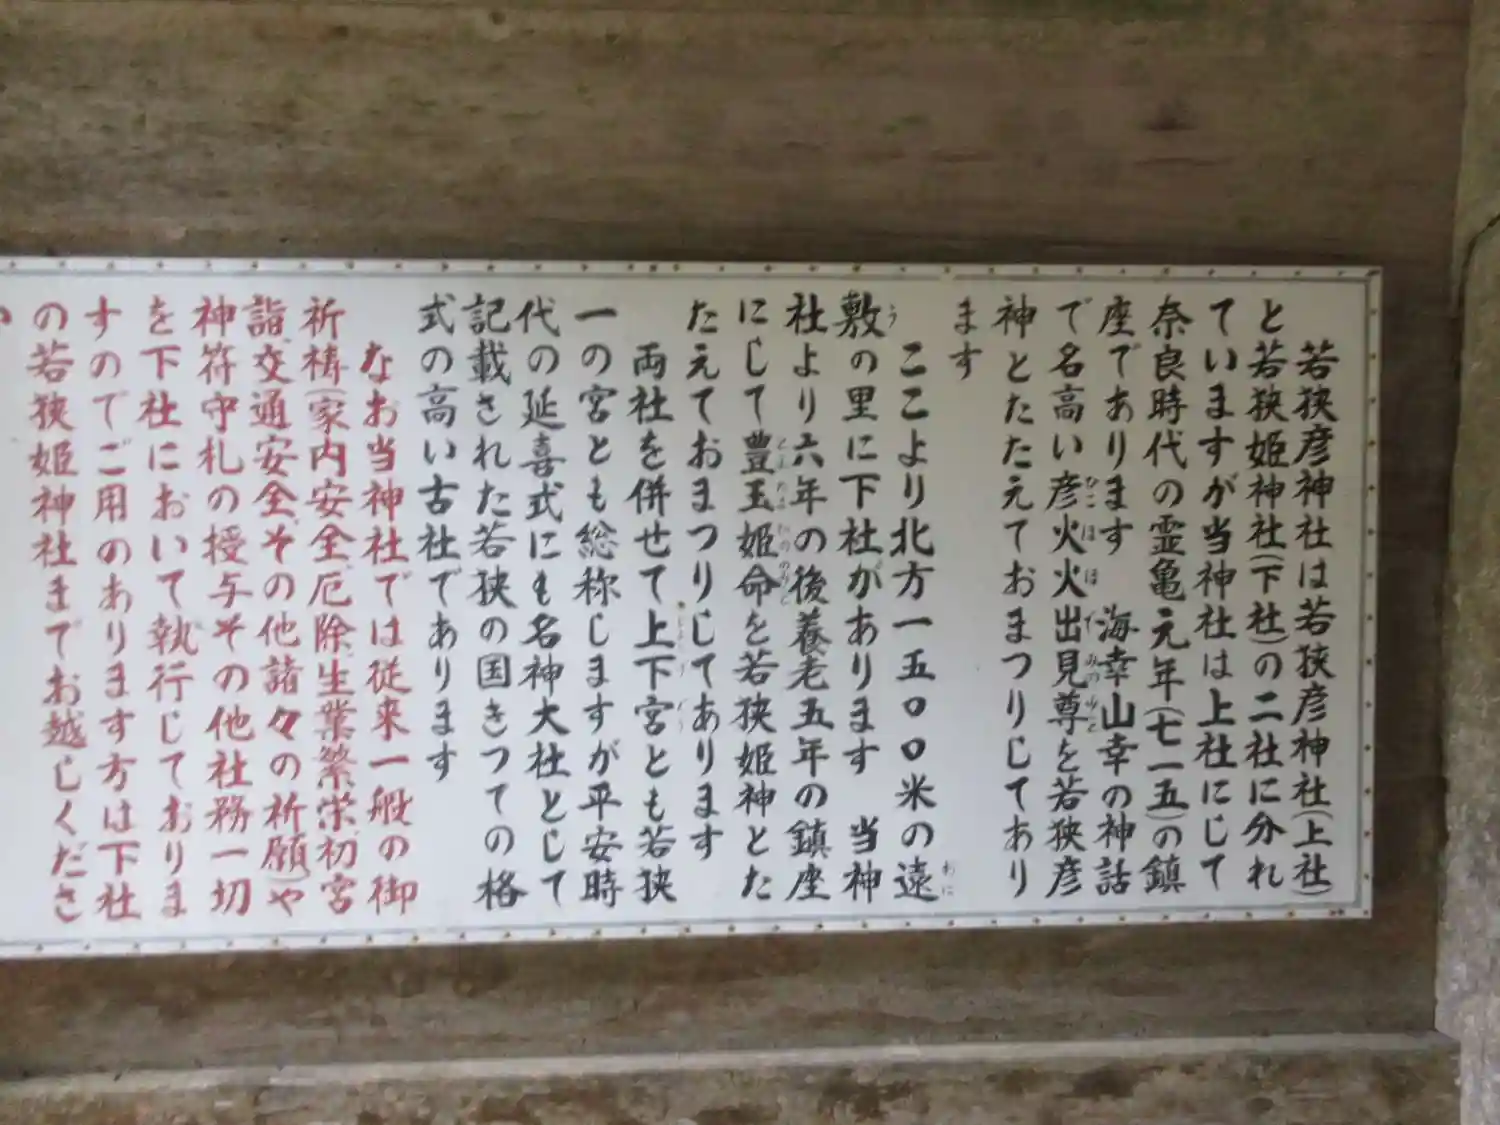 若狭彦神社は若狭彦神社(上社)
と若狭姫神社(下社)の二社に分れ
ていますが当神社は上社にして
奈良時代の霊亀元年(七一五)の鎮
座であります　海幸山幸の神話
で名高い彦火火出見尊を若狭彦
神とたたえておまつりしてあり
ます
ここより北方一五〇〇米の遠
敷の里に下社があります　当神
社より六年の後養老五年の鎮座
にして豊玉姫命を若狭姫神とた
たえておまつりしてあります
両社を併せて上下宮とも若狭
一の宮とも総称しますが平安時
代の延喜式にも名神大社として
記載された若狭の国きつての格
式の高い古社であります
なお当神社では従来一般の御
祈祷(家内安全、厄除、生業繁栄、初宮
詣、交通安全、その他諸々の祈願)や
神符守札の授与その他社務一切
を下社において執行しておりま
すのでご用のあります方は下社
の若狭姫神社までお越しくださ
い